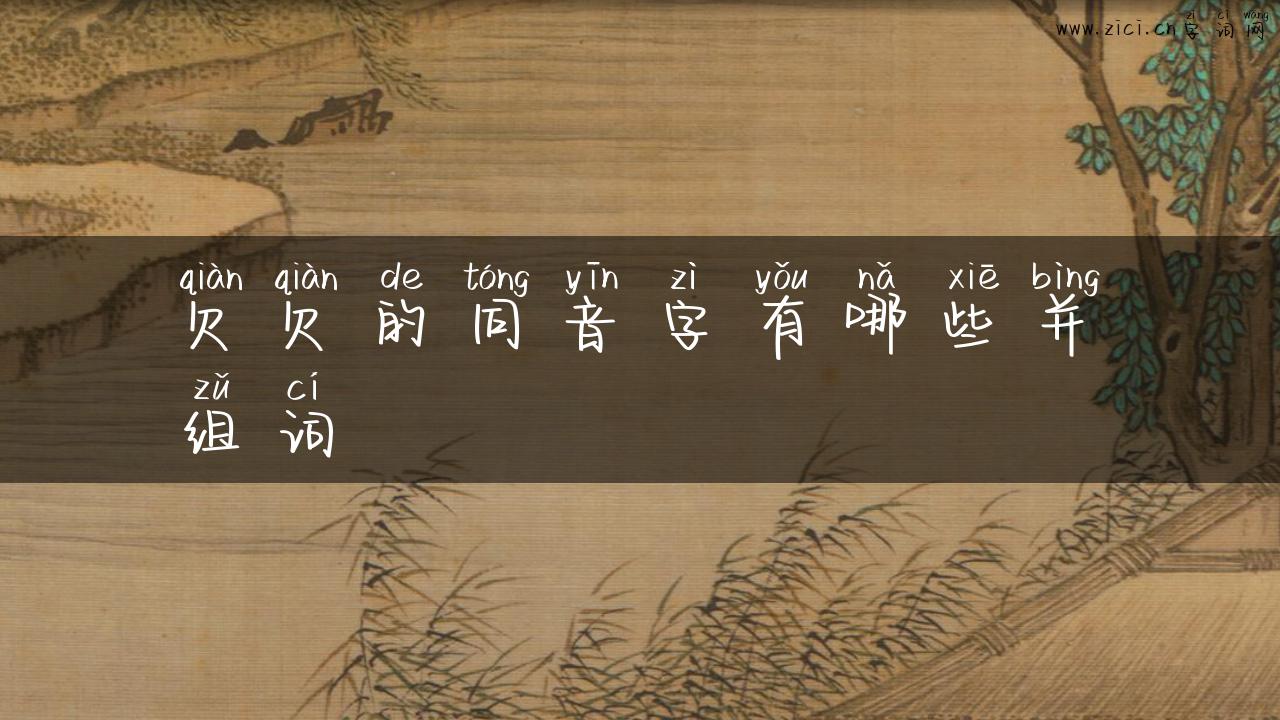 zì cí wǎng
www.zici.cn字词网
qiàn qiàn de tóng yīn zì yǒu nǎ xiē bìng
欠欠的同音字有哪些并
zǔ cí
组词